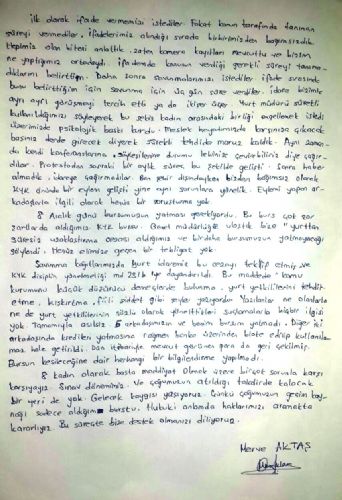 ilk olarak ifade vermemizi istediler. Fakat kanun tarafında tanınan
süreyi vermediler. ifadelerimiz alındığı sırada birbirimizden bağımsızdık
Hepimiz olan biteni anlattık. zaten kamera kayıtları mevcuttu ve bizim
ne yaptığımız ortadaydı. ifademde kanunun verdiği gerekli süreyi tanıma-
dıklarını belirttim. Daha sonra savunmalarımızı istediler. ifade sırasında
bunu belirttiğim için savunma için üç gün süre verdiler. idare bizimle
ayrı ayrı görüşmeyi tercih etti ya da ikişer üçer. Yurt müdürü sürekli
kullanıldığımızı söyleyerek bu sekiz kadın arasındaki birliği engellemek istedi
üzerimizde psikolojik baskı kurdu. Meslek hayatımızda karşınıza çıkacak
başınız derde girecek diyerek sürekli tehdide maruz kaldık. Aynı zaman-
da kendi konferanslarına söyleşilerine durumu lehinize çevirebiliriz diye çağır-
dılar. Protestodan sonraki bir aylık süreç bu şekilde gelişti. Sonra haber
almadık. idareye çağırmadılar. Ben şehir dışındayken bizden bağımsız olarak
KYK önünde bir eylem gelişti yine aynı sorunlara yönelik. Eylemi yapan ar-
kadaşlarla ilgili olarak henüz bir soruşturma yok.
8 Aralık günü bursumuzun yatması gerekiyordu. Bu burs çok zor
şartlarda aldığımız KYK bursu. Genel müdürlüğe ulaştık bize "yurttan
süresiz uzaklaştırma cezası aldığımızı ve birdaha bursumuzun yatmayacağı
söylendi. Henüz elimize geçen bir tebligat yok.
Savunma kağıtlarımızda Yurt idaremiz bu cezayı teklif etmiş ve
KYK disiplin yönetmeliği md 23/b 'ye dayandırıldı. Bu maddede "kamu
kurumunu küçük düşürücü demeçlerde bulunma, yurt yetkililerini tehdit
etme, kışkırtma, fiili şiddet gibi şeyler yazıyordu Yazılanlar ne olanlarla
ne de yurt yetkililerinin sözlü olarak yönelttikleri suçlamalarla hiçbir ilgisi
yok. Tamamıyla asılsız. 6 arkadaşımızın ve benim bursum yatmadı. Diğer iki
arkadaşında kredileri yatmasına rağmen banka üzerinden bloke edilip kullanıla-
maz hale getirildi. Dün itibariyle mevcut görünen para da geri çekilmiş.
Bursun kesileceğine dair herhangi bir bilgilendirme yapılmadı.
8 kadın olarak başta maddiyat olmak üzere birçok sorunla karşı
karşıyayız. Sınav dönemimiz. Ve çoğumuzun atıldığı takdirde kalacak
bir yeri de yok. Gelecek kaygısı yaşıyoruz. Çünkü çoğumuzun geçim kay-
nağı sadece aldığımız burstu. Hukuki anlamda haklarımızı aramakta
kararlıyız. Bu süreçte bize destek olmanızı diliyoruz.
Merve AKTAŞ